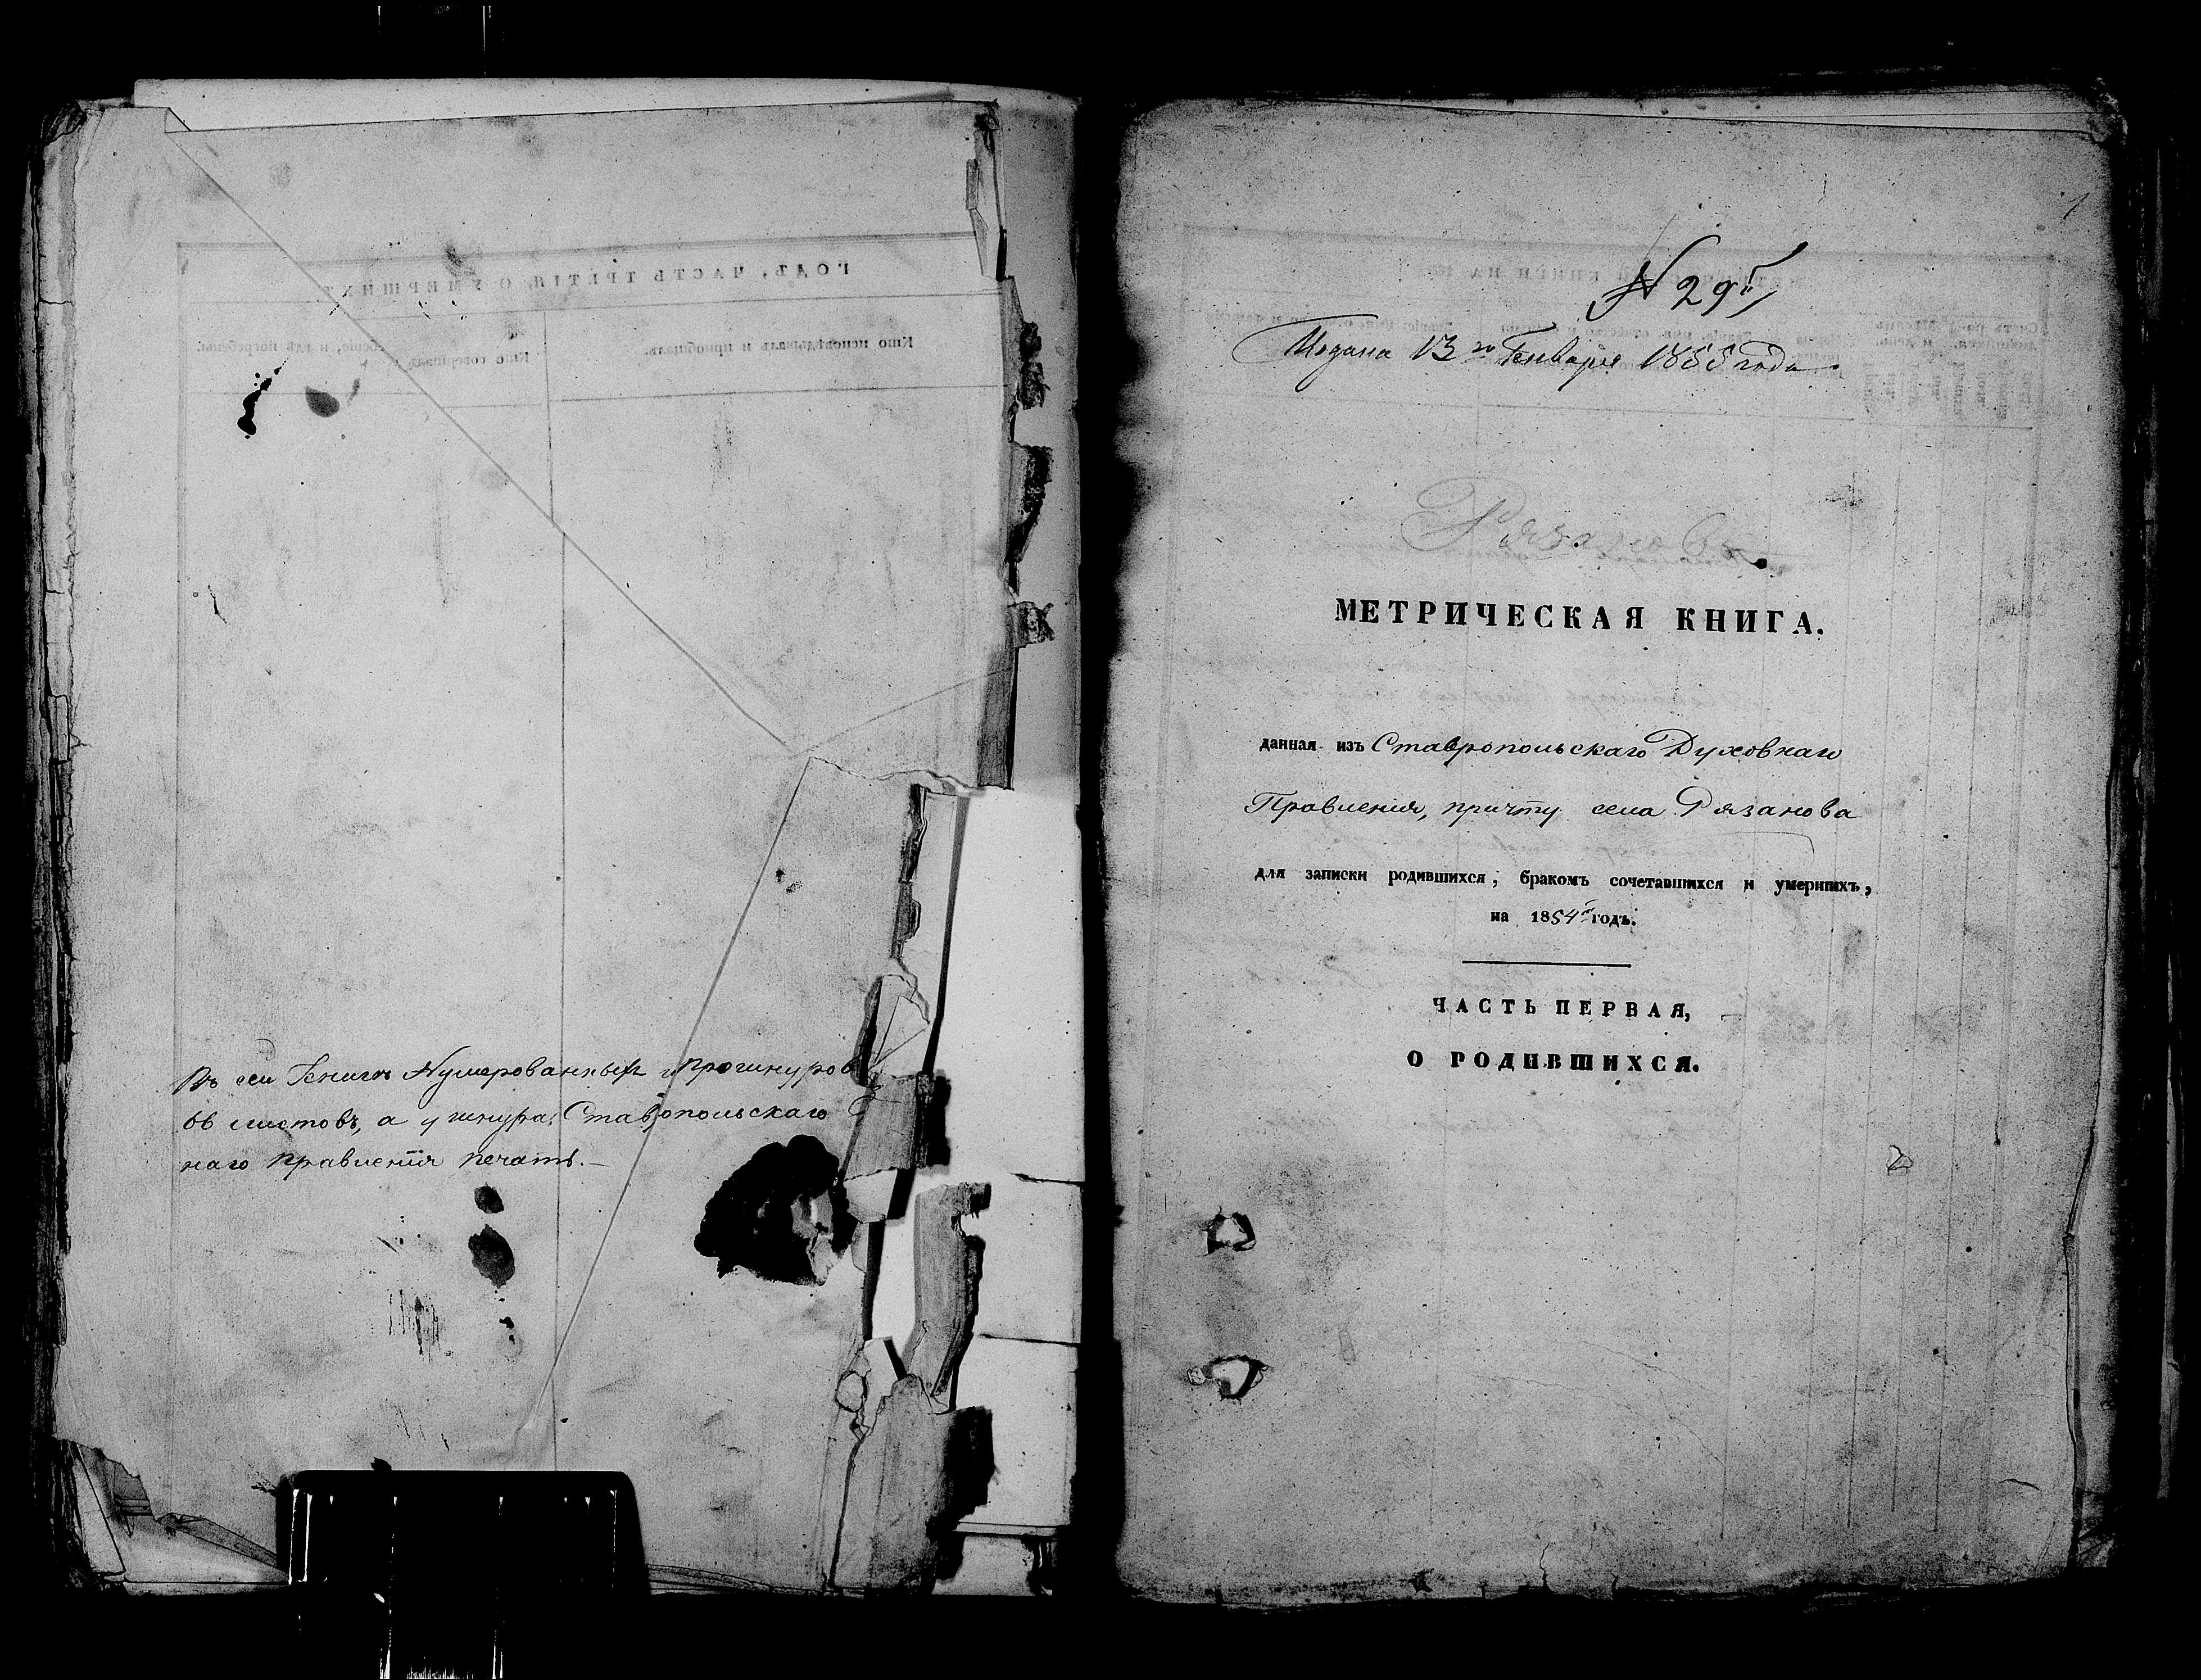 ГОДЪ, ЧАСТЬ ТРЕТІЯ, О УМЕРШИХЪ
Кто исповѣдывалъ и пріобщалъ.
Кто совершалъ и гдѣ погребены.
Въ сей Книгѣ Нумерованныхъ и прошнуров
66 листовъ, а у шнура Ставропольскаго
наго правленія печать.—
1
№ 29й
Подана 13го Генваря 1855 года
Рязановъ
МЕТРИЧЕСКАЯ КНИГА.
данная изъ Ставропольскаго Духовнаго
Правленія, причту села Рязанова
для записки родившихся, бракомъ сочетавшихся и умершихъ,
на 1854й годъ.
ЧАСТЬ ПЕРВАЯ,
О РОДИВШИХСЯ.